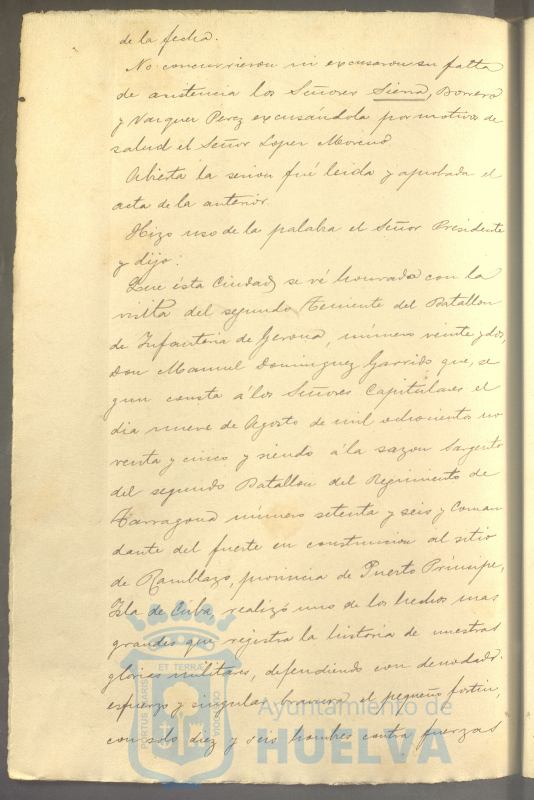 de la fecha.
No concurrieron ni excusaron su falta
de asistencia los Señores Sierra, Borrero
y Vazquez Perez excusándola por motivos de
salud el Señor Lopez Moreno
Abierta la sesion fué leida y aprobada el
acta de la anterior.
Hizo uso de la palabra el Señor Presidente
y dijo:
Que ésta Ciudad, se vé honrada con la
visita del segundo Teniente del Batallon
de Infanteria de Gerona, número veinte y dos,
Don Manuel Dominguez Garrido que, se
gun consta á los Señores Capitulares el
dia nueve de Agosto de mil ochocientos no
venta y cinco y siendo á la sazon Sargento
del segundo Batallon del Regimiento de
Tarragona número setenta y seis y Coman
dante del fuerte en construccion al sitio
de Ramblazo, provincia de Puerto Principe,
Isla de Cuba, realizó uno de los hechos mas
grandes que registra la historia de nuestras
glorias militares, defendiendo con denodado
esfuerzo y singular bravura el pequeño fortin,
con solo diez y seis hombres contra fuerzas
ET TERRAE
PORTUS MARIS
CUSTODIA
Ayuntamiento de
HUELVA